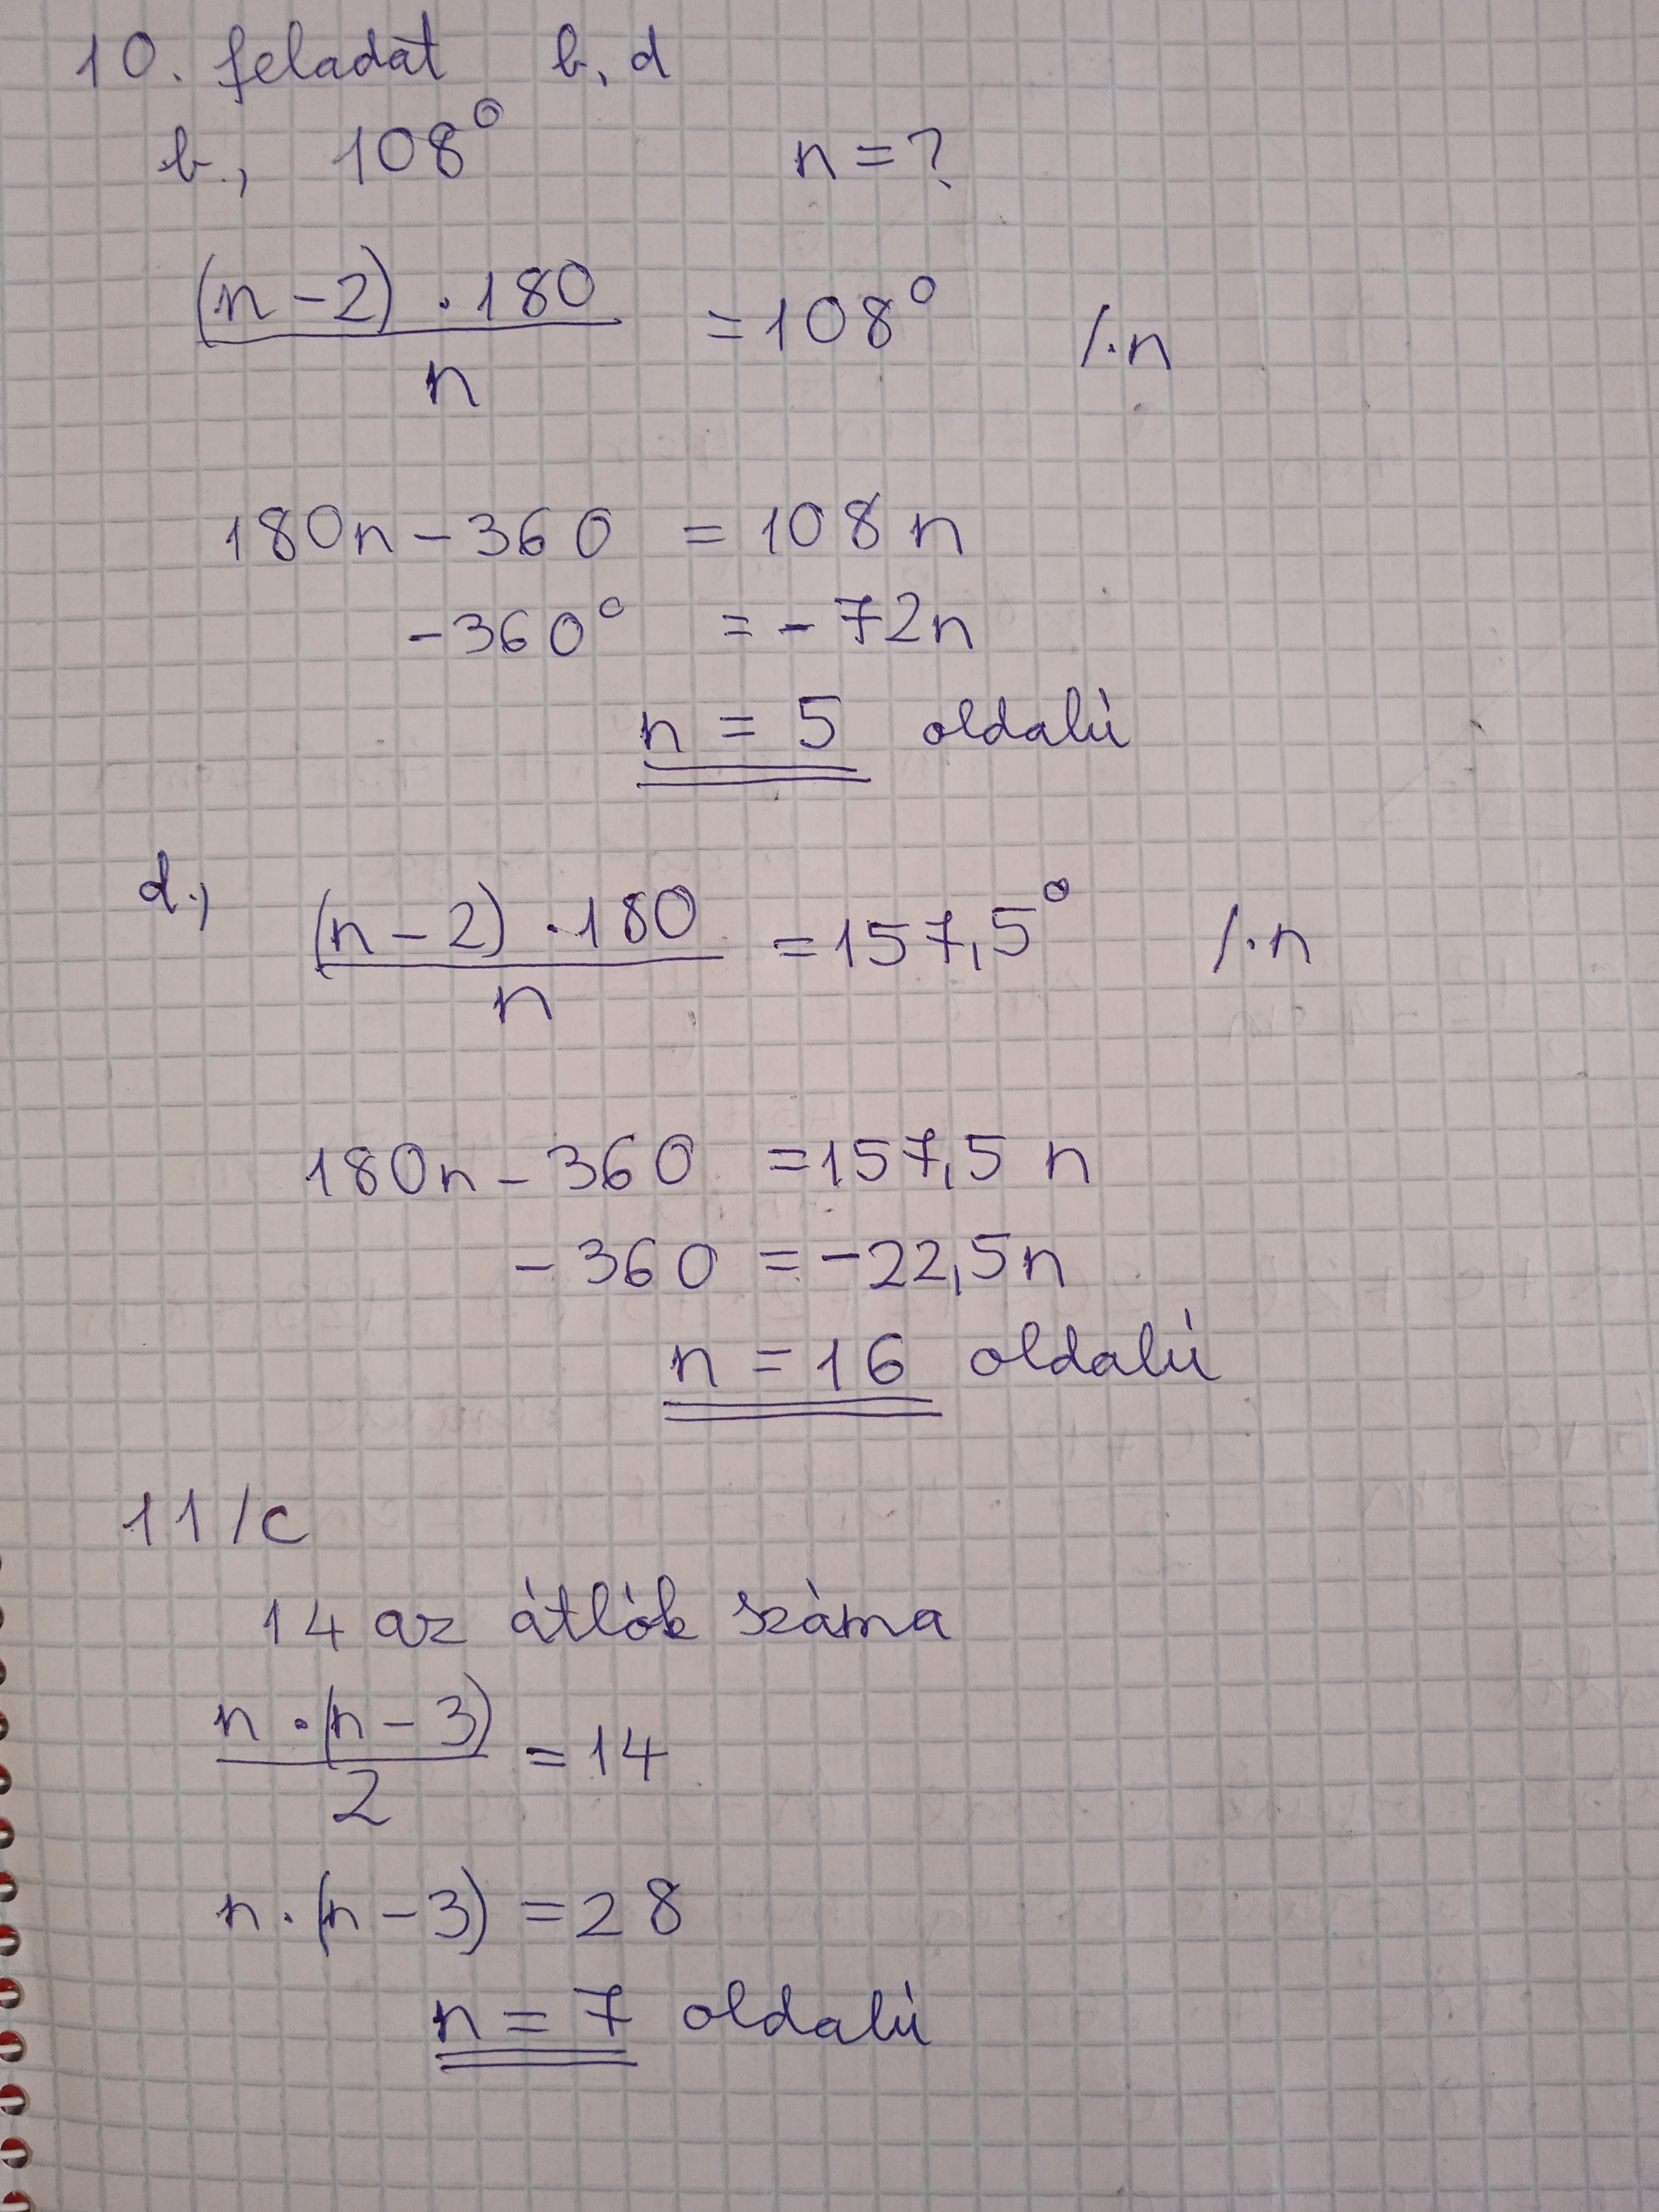 10. feladat b, d
b., 108° n = ?
(n - 2) · 180
/n = 108° /·n
180n - 360 = 108 n
-360° = - 72n
n = 5 oldalú
d., (n - 2) · 180
/n = 157,5° /·n
180n - 360 = 157,5 n
- 360 = -22,5n
n = 16 oldalú
11/c
14 az átlók száma
n · (n - 3)
/2 = 14
n · (n - 3) = 28
n = 7 oldalú